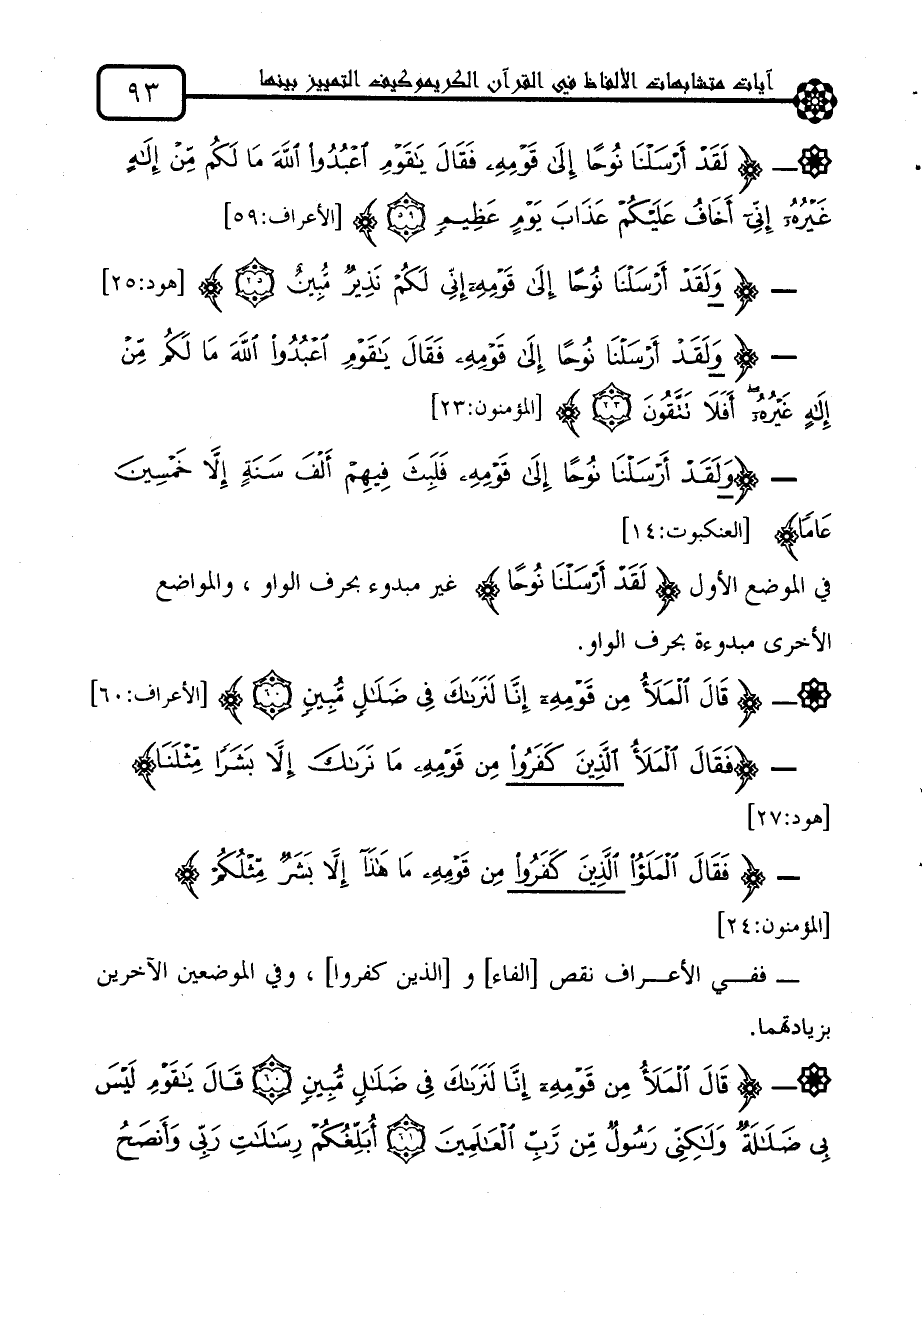 آيات متشابهات الألفاظ في القرآن الكريموكيف التمييز بينها
٩٣
_ ﴿ لَقَدْ أَرْسَلْنَا نُوحًا إِلَىٰ قَوْمِهِۦ فَقَالَ يَٰقَوْمِ ٱعْبُدُوا۟ ٱللَّهَ مَا لَكُم مِّنْ إِلَٰهٍ
غَيْرُهُۥٓ إِنِّىٓ أَخَافُ عَلَيْكُمْ عَذَابَ يَوْمٍ عَظِيمٍ ٥٩ ﴾ [الأعراف:٥٩]
_ ﴿ وَلَقَدْ أَرْسَلْنَا نُوحًا إِلَىٰ قَوْمِهِۦٓ إِنِّى لَكُمْ نَذِيرٌ مُّبِينٌ ٢٥ ﴾ [هود:٢٥]
_ ﴿ وَلَقَدْ أَرْسَلْنَا نُوحًا إِلَىٰ قَوْمِهِۦ فَقَالَ يَٰقَوْمِ ٱعْبُدُوا۟ ٱللَّهَ مَا لَكُم مِّنْ
إِلَٰهٍ غَيْرُهُۥٓ ۖ أَفَلَا تَتَّقُونَ ٢٣ ﴾ [المؤمنون:٢٣]
_ ﴿وَلَقَدْ أَرْسَلْنَا نُوحًا إِلَىٰ قَوْمِهِۦ فَلَبِثَ فِيهِمْ أَلْفَ سَنَةٍ إِلَّا خَمْسِينَ
عَامًا﴾ [العنكبوت:١٤]
في الموضع الأول ﴿ لَقَدْ أَرْسَلْنَا نُوحًا ﴾ غير مبدوء بحرف الواو ، والمواضع
الأخرى مبدوءة بحرف الواو.
_ ﴿ قَالَ ٱلْمَلَأُ مِن قَوْمِهِۦٓ إِنَّا لَنَرَىٰكَ فِى ضَلَٰلٍ مُّبِينٍ ٦٠ ﴾ [الأعراف:٦٠]
_ ﴿فَقَالَ ٱلْمَلَأُ ٱلَّذِينَ كَفَرُوا۟ مِن قَوْمِهِۦ مَا نَرَىٰكَ إِلَّا بَشَرًا مِّثْلَنَا﴾
[هود:٢٧]
_ ﴿ فَقَالَ ٱلْمَلَؤُا۟ ٱلَّذِينَ كَفَرُوا۟ مِن قَوْمِهِۦ مَا هَٰذَآ إِلَّا بَشَرٌ مِّثْلُكُمْ ﴾
[المؤمنون:٢٤]
_ ففي الأعراف نقص [الفاء] و [الذين كفروا] ، وفي الموضعين الآخرين
بزيادتهما.
_ ﴿ قَالَ ٱلْمَلَأُ مِن قَوْمِهِۦٓ إِنَّا لَنَرَىٰكَ فِى ضَلَٰلٍ مُّبِينٍ ٦٠ قَالَ يَٰقَوْمِ لَيْسَ
بِى ضَلَٰلَةٌ وَلَٰكِنِّى رَسُولٌ مِّن رَّبِّ ٱلْعَٰلَمِينَ ٦١ أُبَلِّغُكُمْ رِسَٰلَٰتِ رَبِّى وَأَنصَحُ